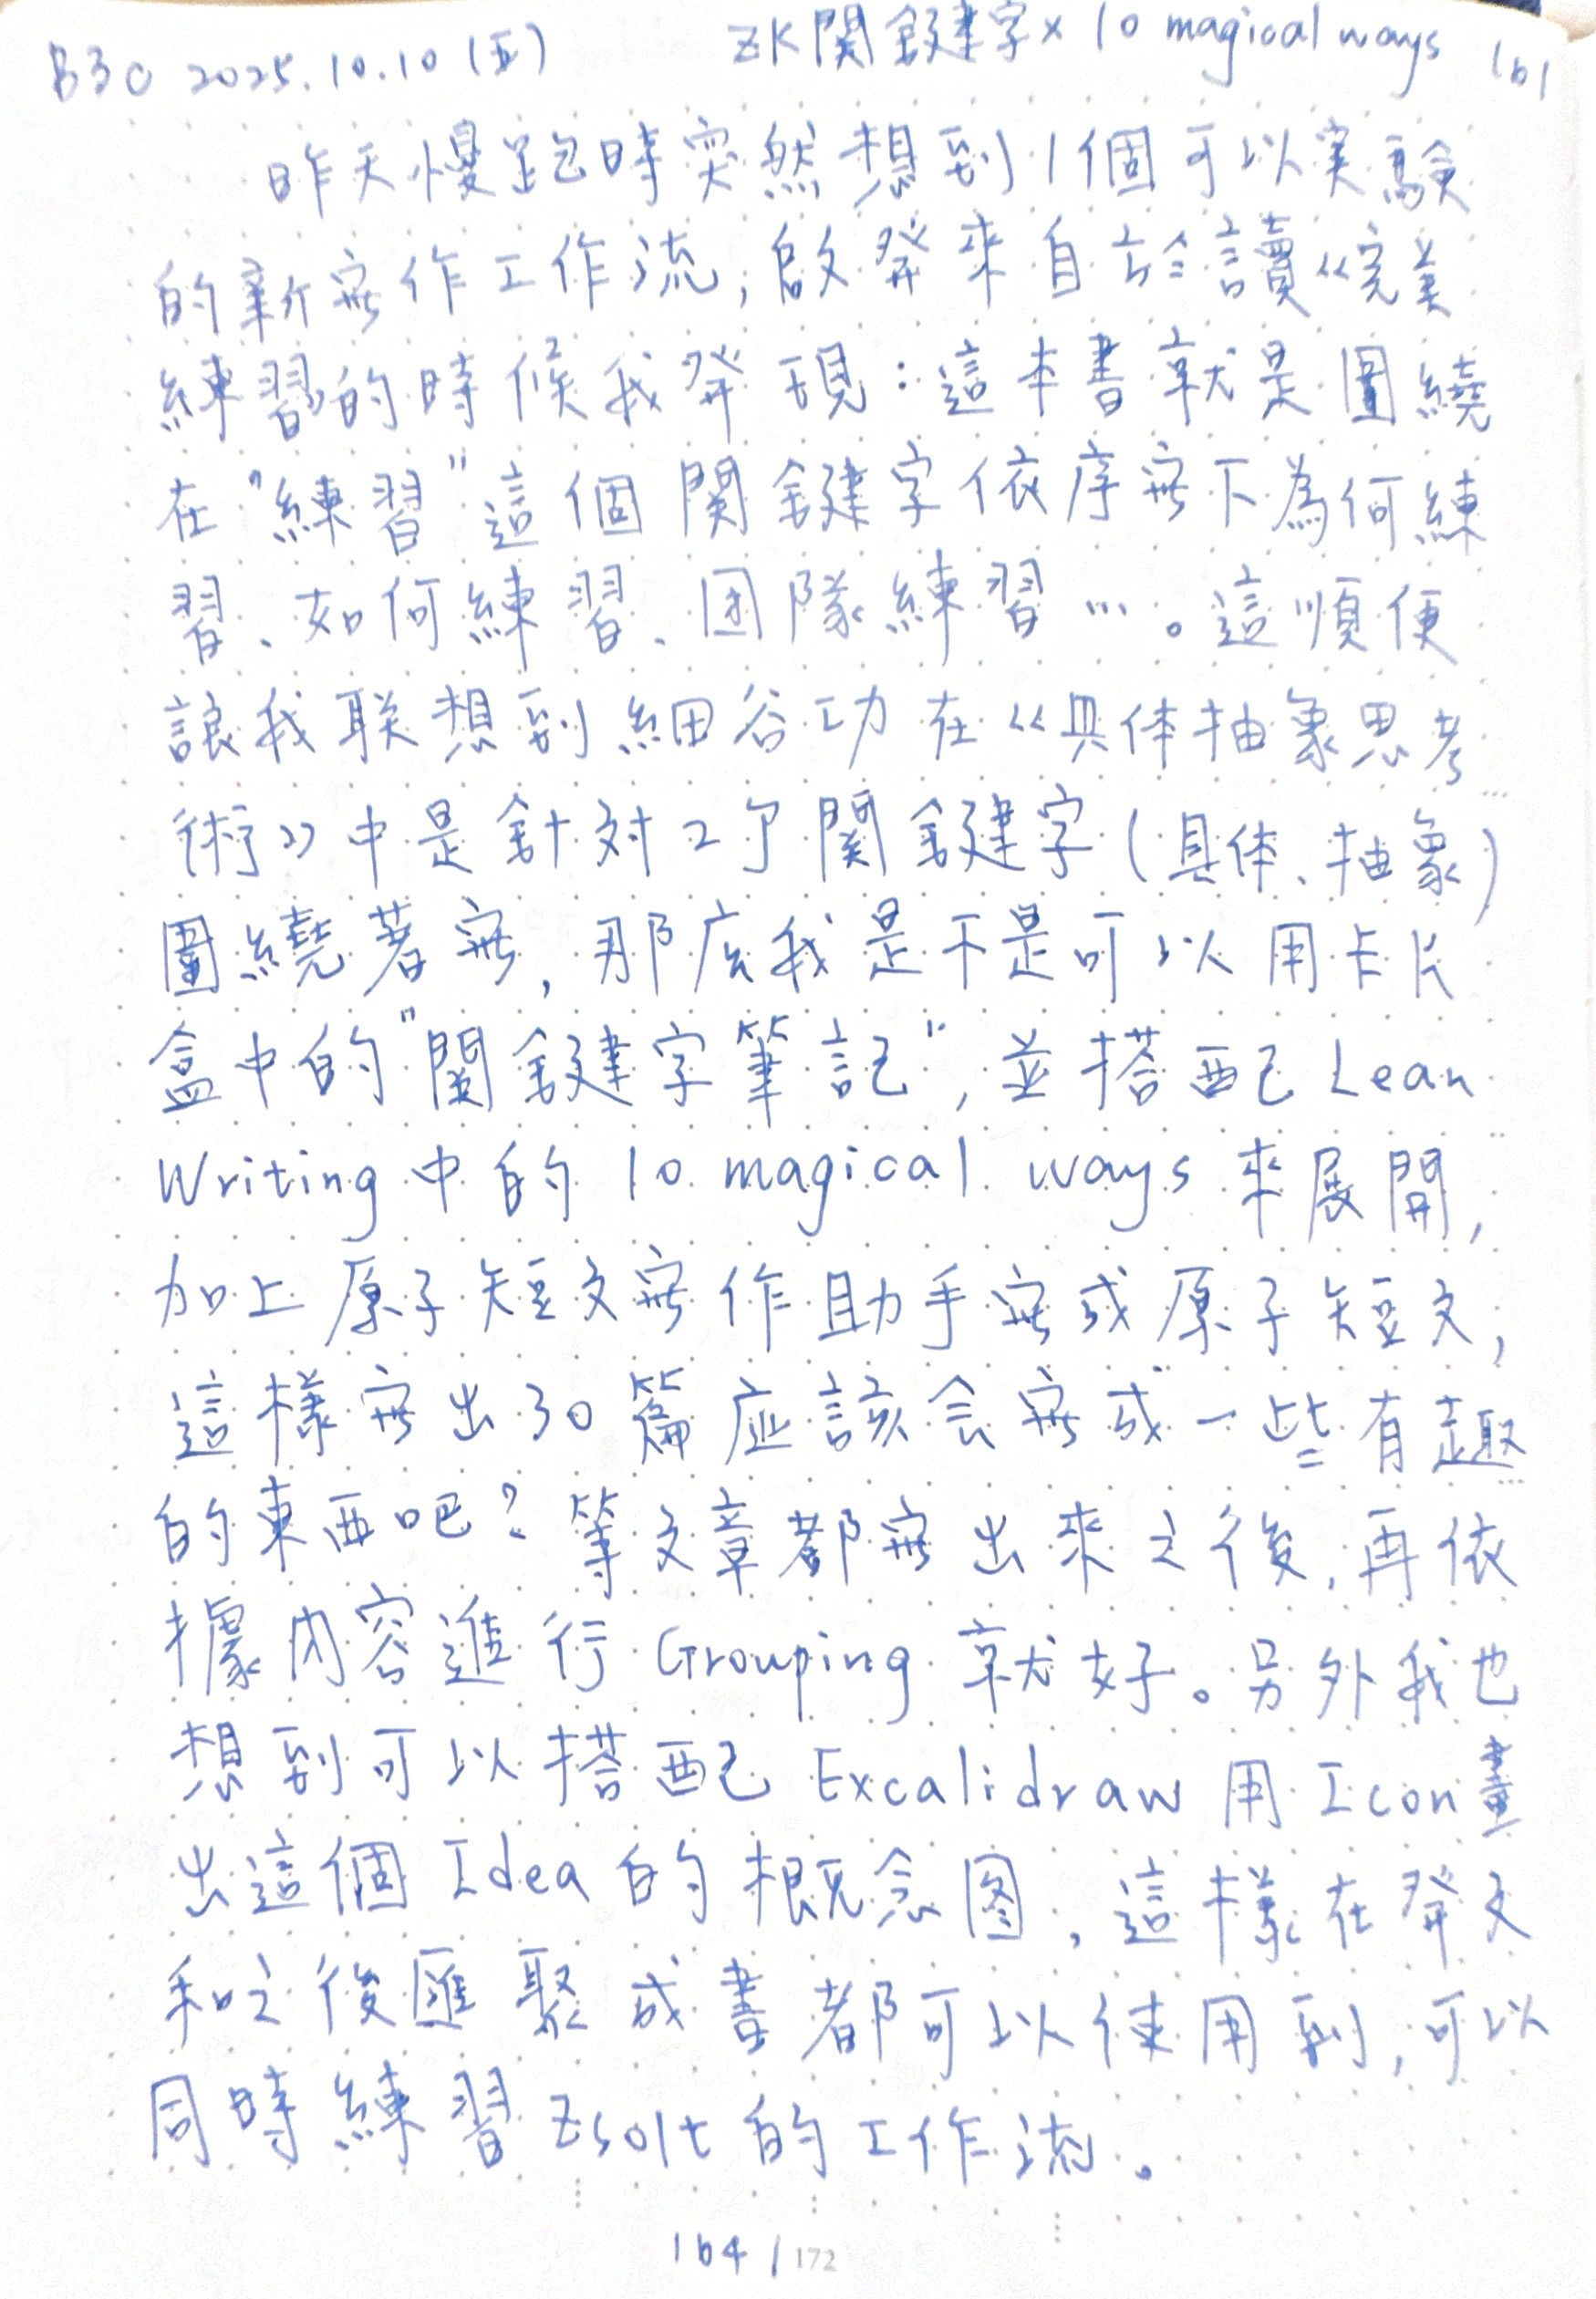 B30 2025.10.10 (五) ZK関鍵字 × 10 magical ways 161
昨天慢跑時突然想到1個可以実驗
的新寫作工作流,啟発來自於讀《完美
練習的時候我発現:這本書就是圍繞
在"練習"這個関鍵字依序寫下為何練
習、如何練習、团隊練習…。這順便
讓我联想到細谷功在《具体抽象思考
術》中是針对2个関鍵字(具体、抽象)
圍繞著寫,那麼我是不是可以用卡片
盒中的"関鍵字筆記",並搭配Lean
Writing中的10 magical ways來展開,
加上原子短文寫作助手寫成原子短文,
這樣寫出30篇应該会寫成一些有趣
的東西吧?等文章都寫出來之後,再依
據內容進行Grouping就好。另外我也
想到可以搭配Excalidraw用Icon畫
出這個Idea的概念图,這樣在発文
和之後匯聚成書都可以使用到,可以
同時練習Zsolt的工作流。
164/172